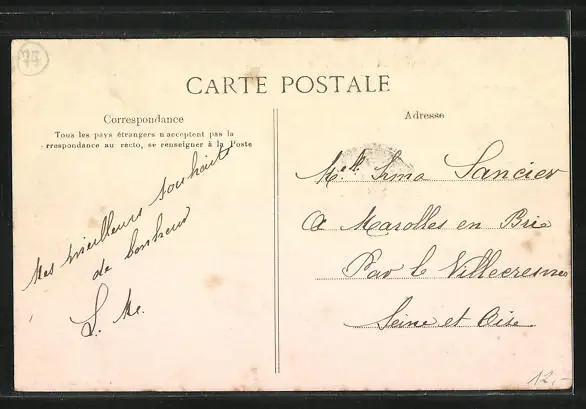 77
CARTE POSTALE
Correspondance
Tous les pays étrangers n'acceptent pas la
rrespondance au recto, se renseigner à la Poste
Mes meilleurs souhaits
de bonheur
L. Mc.
Adresse
Melle Irma Sancier
A Marolles en Brie
Par le Villecresnes
Seine et Oise
12,-